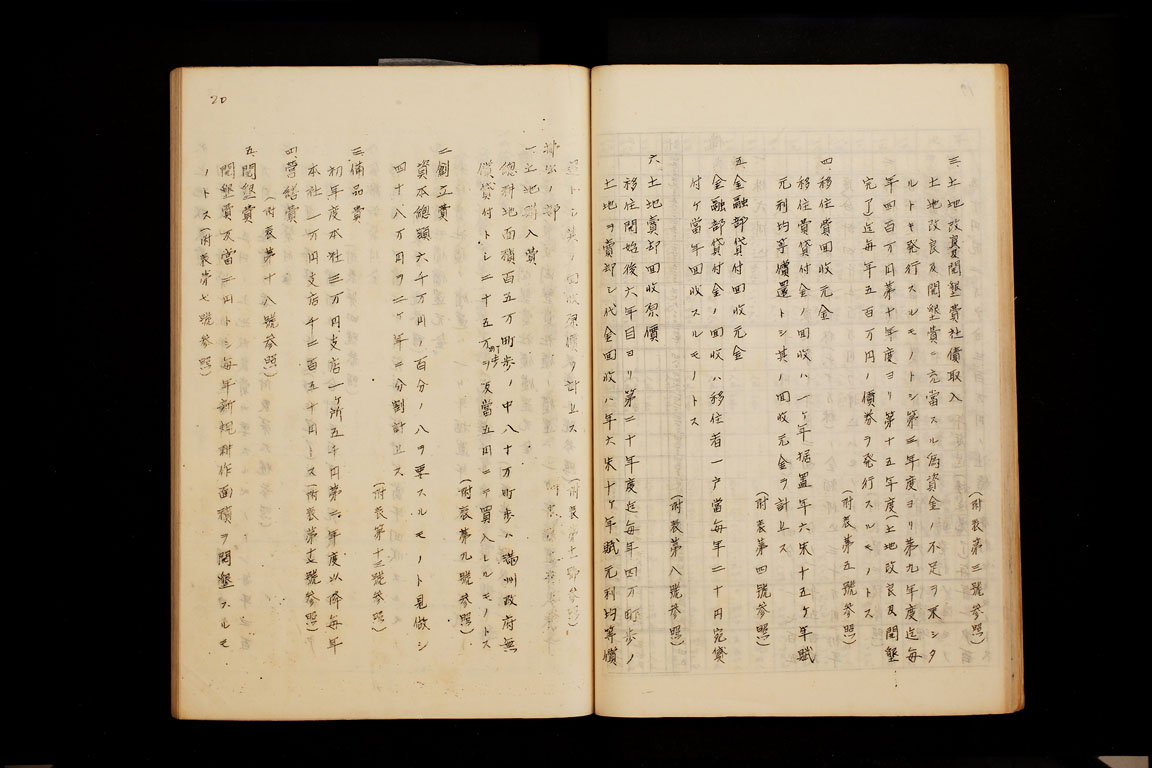 (附表第三號參照)
三、土地改良開墾費社債取入
土地改良及開墾費ニ充當スル為資金ノ不足ヲ來シタ
ルトキ發行スルモノトシ第三年度ヨリ第九年度迄每
年四百万円第十年度ヨリ第十五年度(土地改良及開墾
完了)迄每年五百万円ノ債券ヲ發行スルモノトス
(附表第五號參照)
四、移住費回收元金
移住費貸付金ノ回收ハ一ヶ年据置年六朱十五ヶ年賦
元利均等償還トシ其ノ回收元金ヲ計上ス
(附表第四號參照)
五、金融部貸付回收元金
金融部貸付金ノ回收ハ移住者一戶當每年二十円宛貸
付ケ當年回收スルモノトス
(附表第八號參照)
六、土地賣却回收原價
移住開始後六年目ヨリ第二十年度迄每年四万町步ノ
土地ヲ賣却シ代金回收ハ年六朱十ヶ年賦元利均等償
20
還トシ其ノ回收原價ヲ計上ス(附表第十一號參照)
拂出ノ部
一、土地購入費
總耕地面積百五万町步ノ中八十万町步ハ滿州政府無
償貸付トシ二十五万町步ヲ反當五円ニテ買入レルモノトス
(附表第九號參照)
二、創立費
資本總額六千万円ノ百分ノ八ヲ要スルモノト見做シ
四十八万円ヲ二ヶ年ニ分割計上ス
(附表第十三號參照)
三、備品費
初年度本社三万円支店一ヶ所五千円第二年度以降每年
本社一万円支店千二百五十円トス(附表第十五號參照)
四、營繕費
(附表第十八號參照)
五、開墾費
開墾費反當二円トシ每年新規耕作面積ヲ開墾スルモ
ノトス(附表第七號參照)